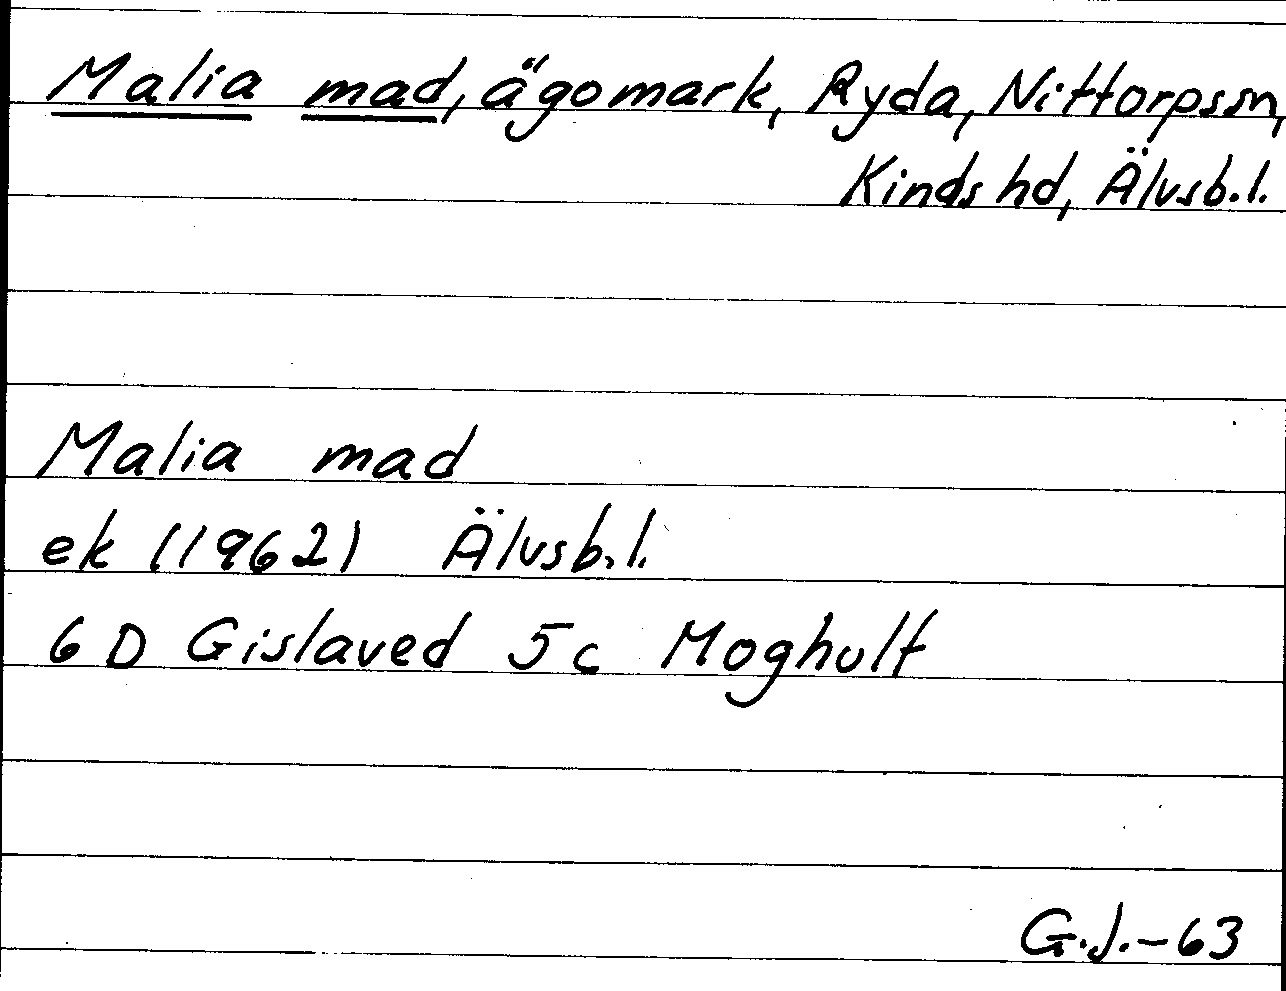 Malia mad, ägomark, Ryda, Nittorpssn,
Kinds hd, Älvsb.l.
Malia mad
ek (1962) Älvsb.l.
6 D Gislaved 5c Moghult
G.J.-63